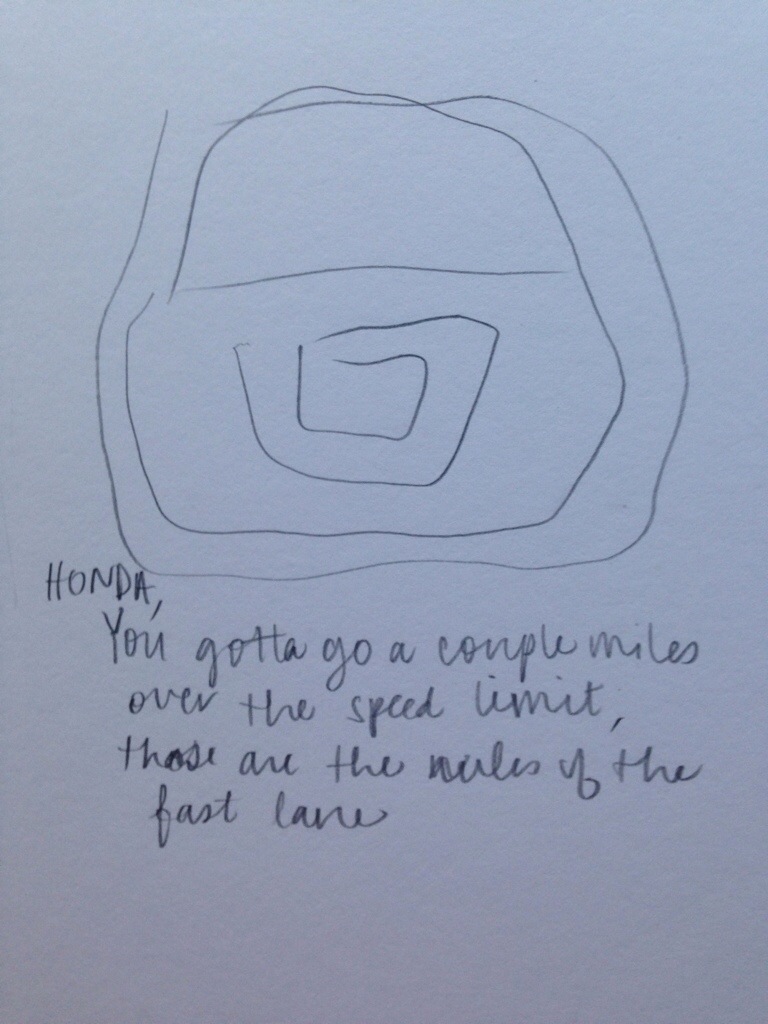 HONDA,
You gotta go a couple miles
over the speed limit,
those are the rules of the
fast lane